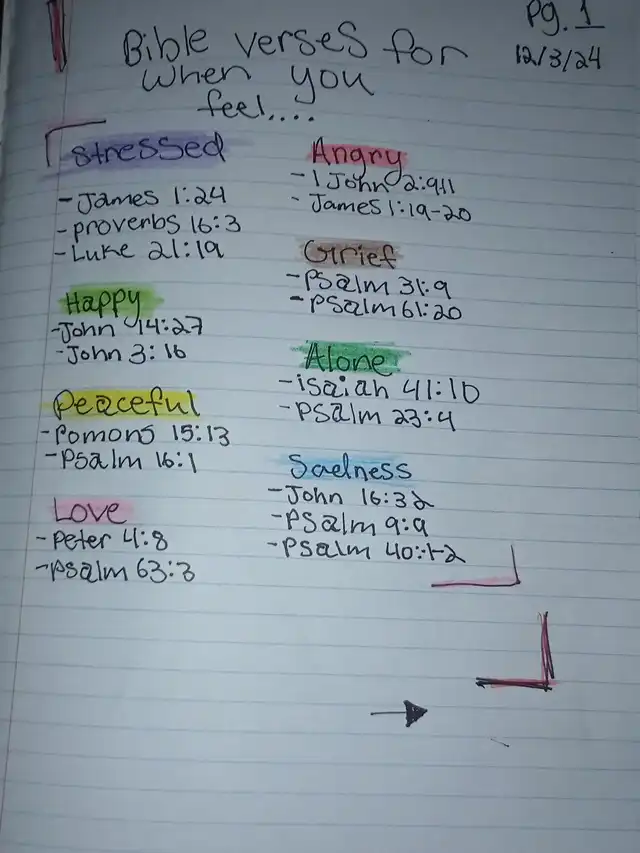 Pg. 1
12/3/24
Bible verses for
when you
feel....
Stressed
- James 1:24
- proverbs 16:3
- Luke 21:19
Happy
- John 14:27
- John 3:16
Peaceful
- Pomons 15:13
- Psalm 16:1
Love
- Peter 4:8
- Psalm 63:3
Angry
- 1 John 2:9-11
- James 1:19-20
Grief
- Psalm 31:9
- Psalm 61:20
Alone
- isaiah 41:10
- Psalm 23:4
Sadness
- John 16:32
- Psalm 9:9
- Psalm 40:1-2